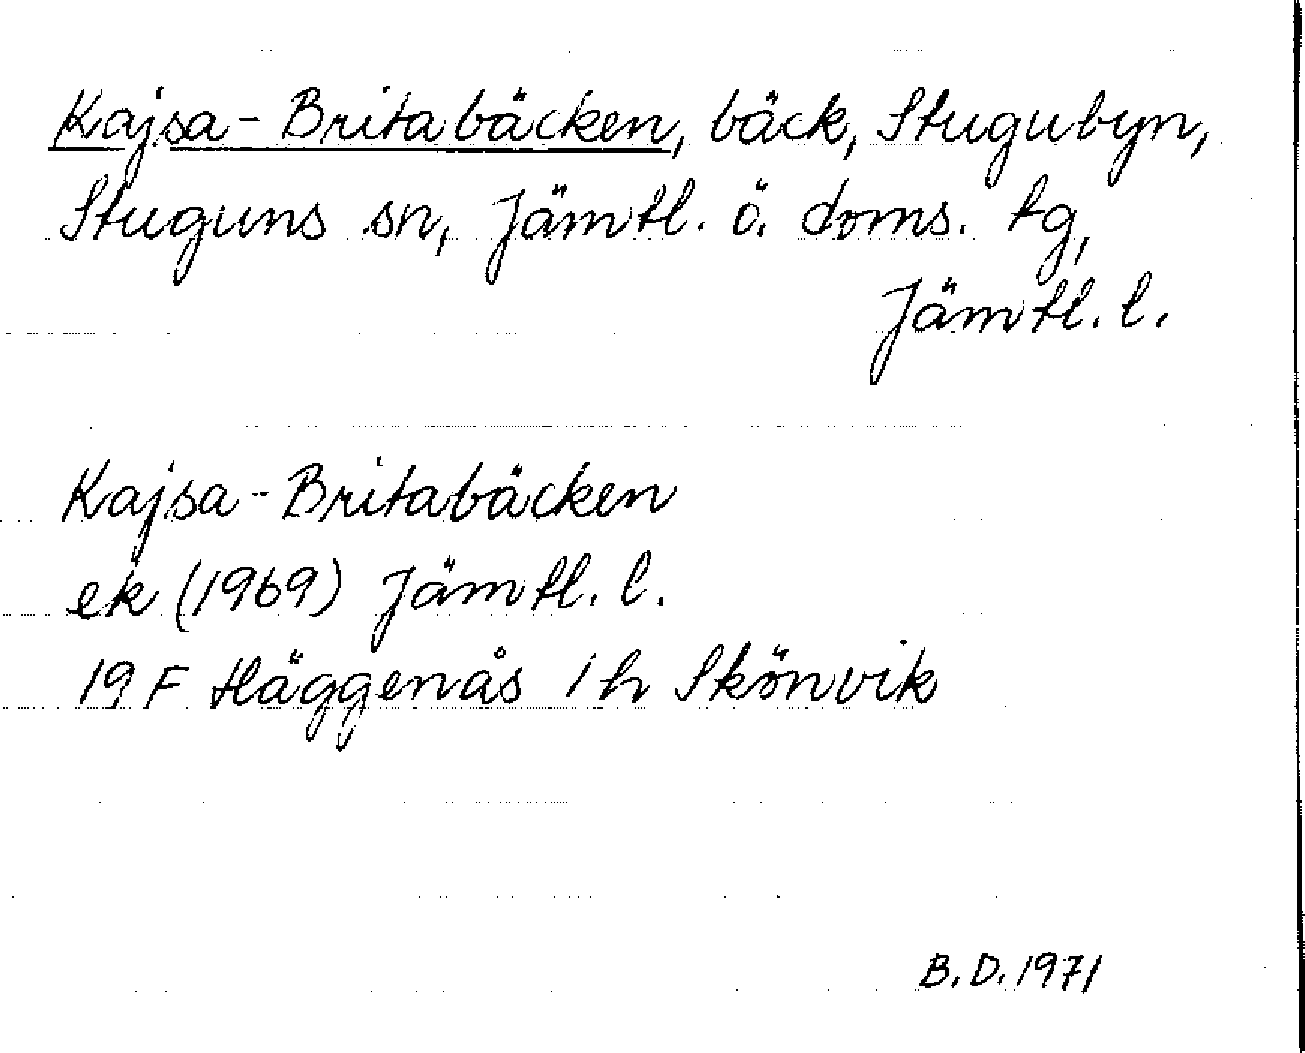 Kajsa-Britabäcken, bäck, Stugubyn,
Stuguns sn, Jämtl. ö. doms. tg,
Jämtl. l.
Kajsa-Britabäcken
ek (1969) Jämtl. l.
19 F Häggenås 1 h Skönvik
B.D. 1971